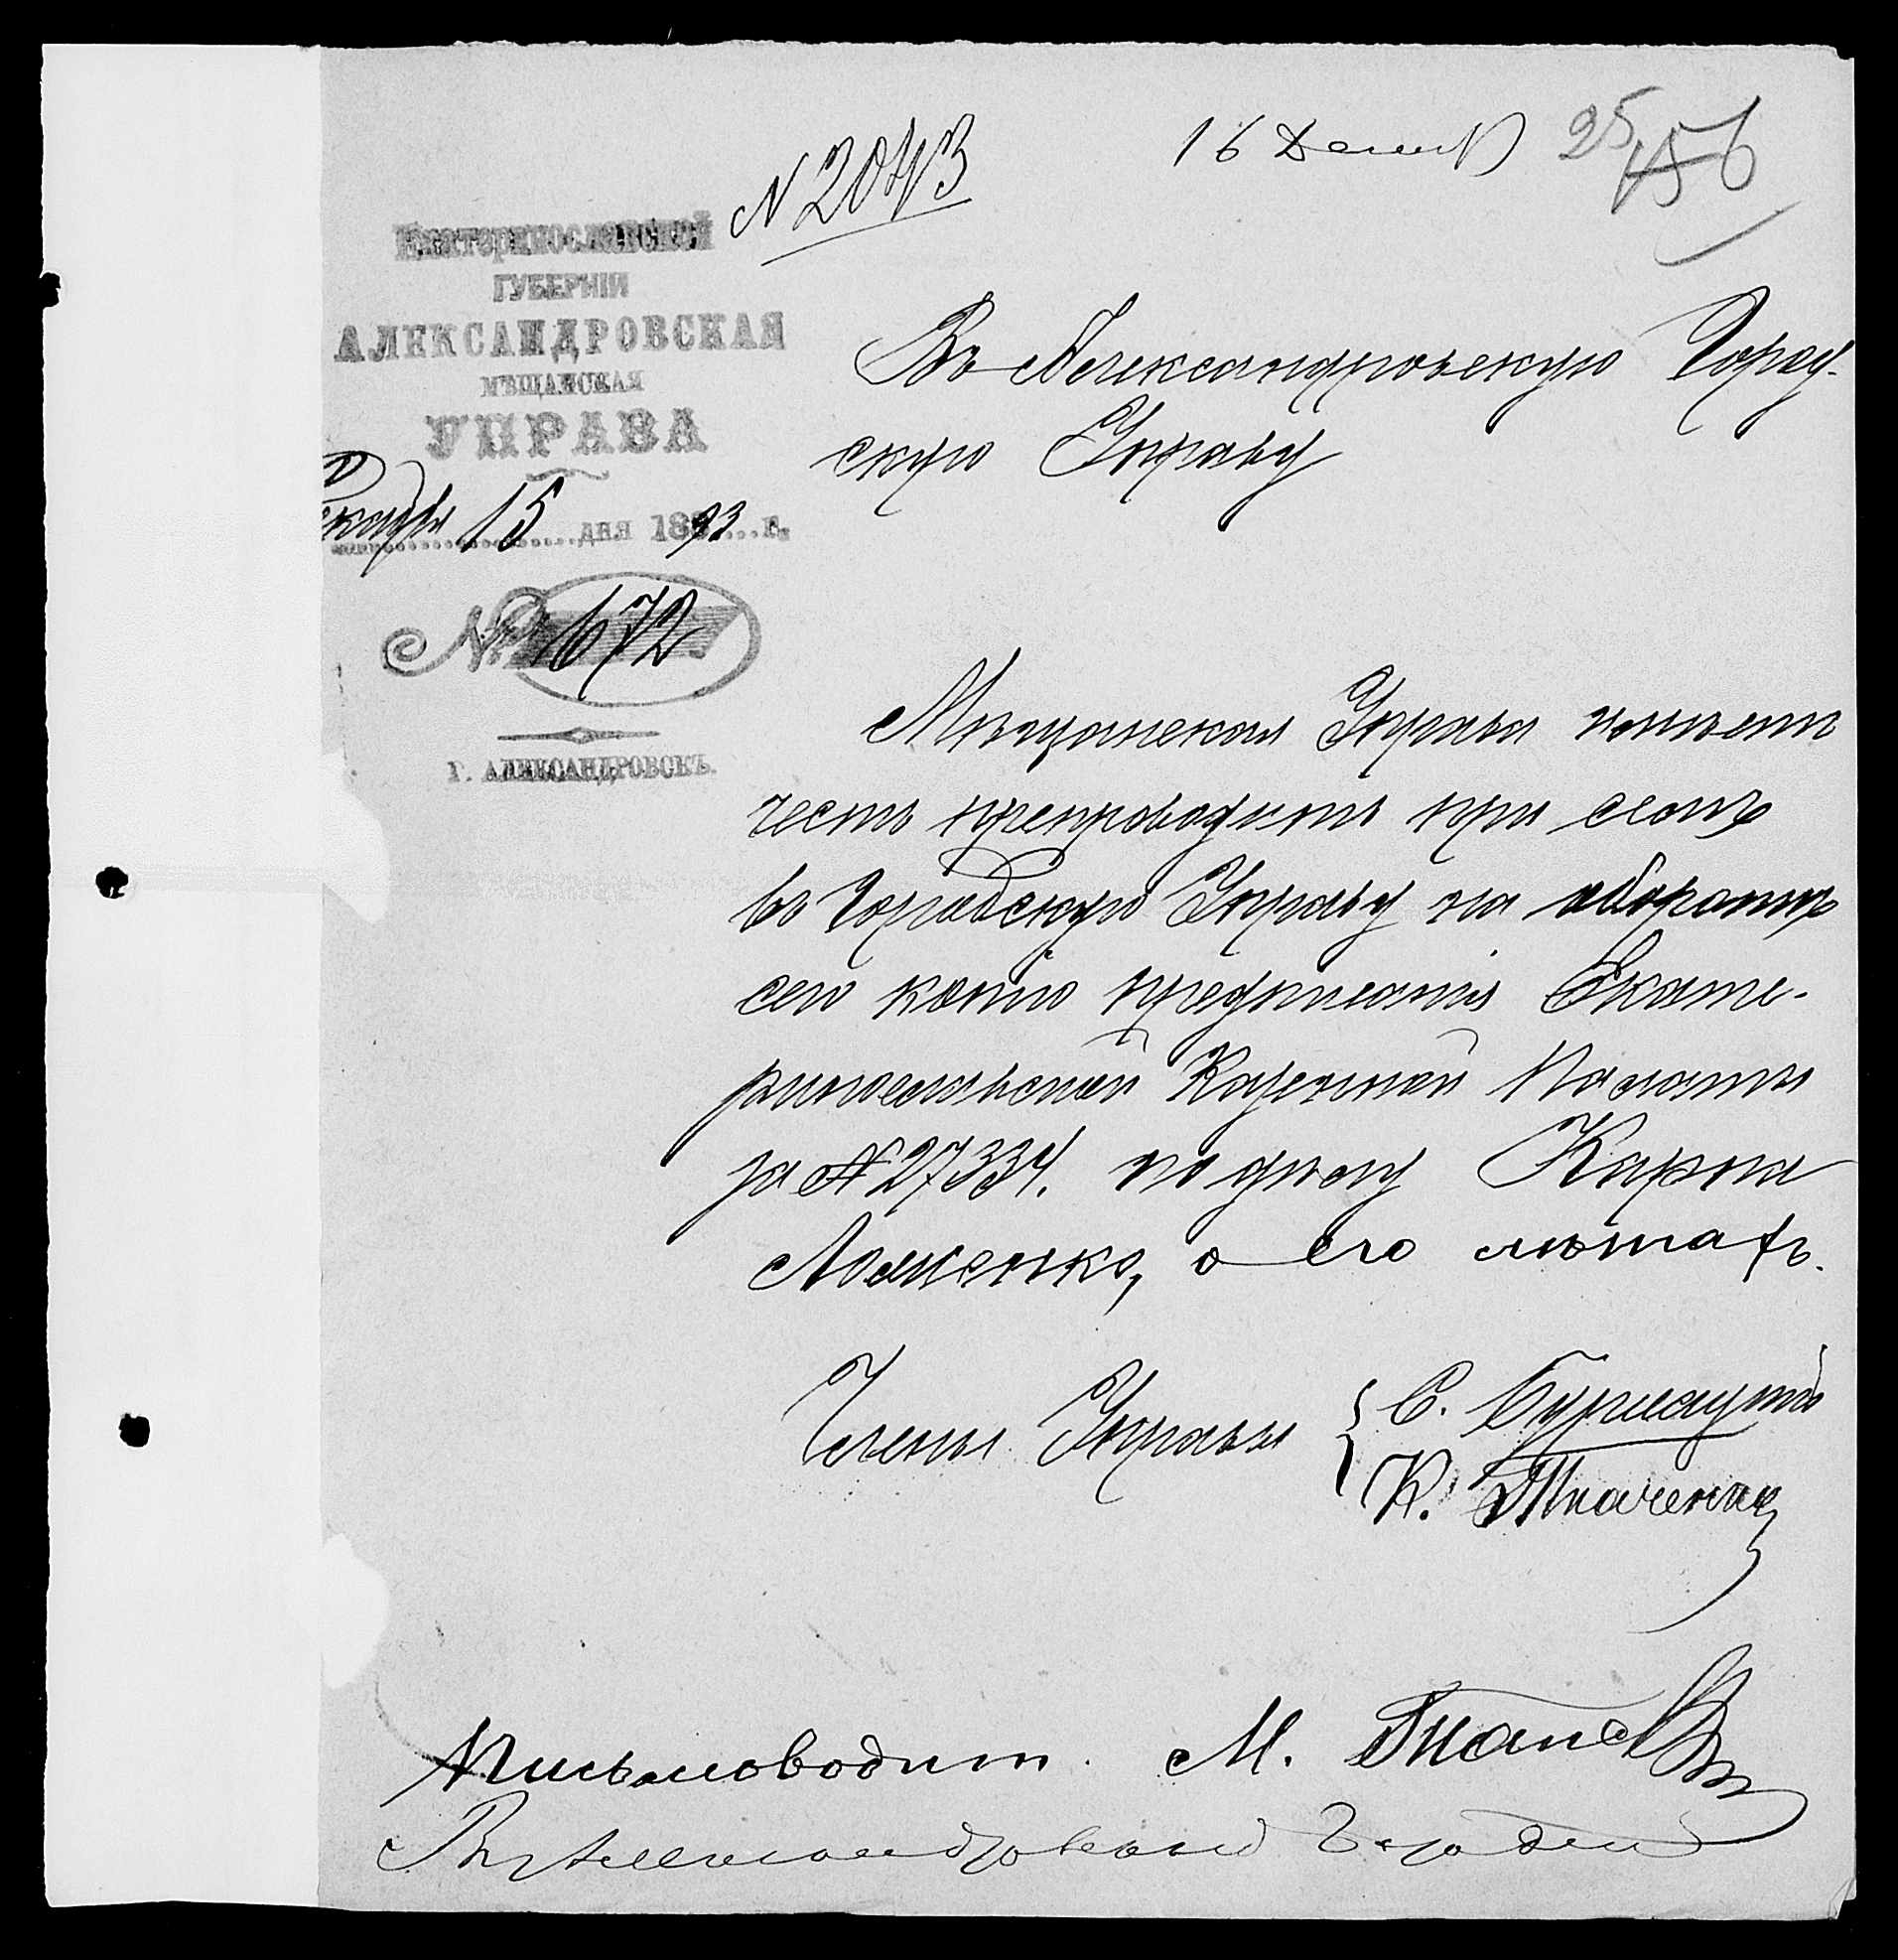 N 2043
16 Декаб
25
156
Екатеринославской
ГУБЕРНІИ
АЛЕКСАНДРОВСКАЯ
МѢЩАНСКАЯ
УПРАВА
Декабря 15 дня 1893 г.
№ 1672
Г. АЛЕКСАНДРОВСКЪ.
Въ Александровскую Город-
скую Управу
Мѣщанская Управа имѣетъ
честь препроводить при семъ
въ Городскую Управу на оборотѣ
сего копію предписанія Екате-
ринославской Казенной Палаты
за № 27334. по дѣлу Карпа
о его лѣтахъ.
Члены Управы
С.
К. Ткаченко
Письмоводит. М.
Въ Александровскую Городскую